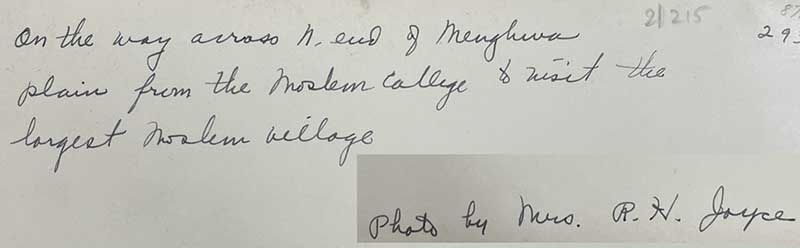 2/215
87
293
On the way across N. end of Menghwa
plain from the Moslem College to visit the
largest Moslem village
Photo by Mrs. R. H. Joyce